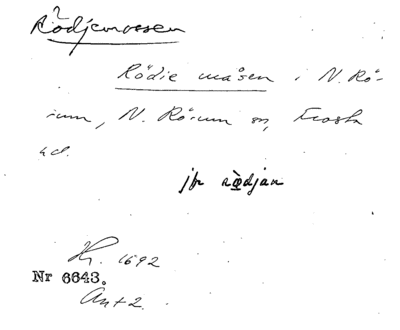 Rödjemossen
Rödie måsen i N. Rö-
rum, N. Rörum sn, Frosta
hd.
jfr rödjan
Hr. 1692
Nr 6643.
Ant 2.